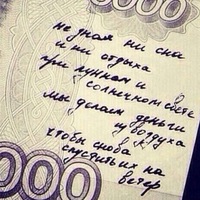 5000
не зная ни сна
и ни отдыха
при лунном и
солнечном свете
мы делаем деньги
из воздуха
чтобы снова
спустить их на
ветер
000